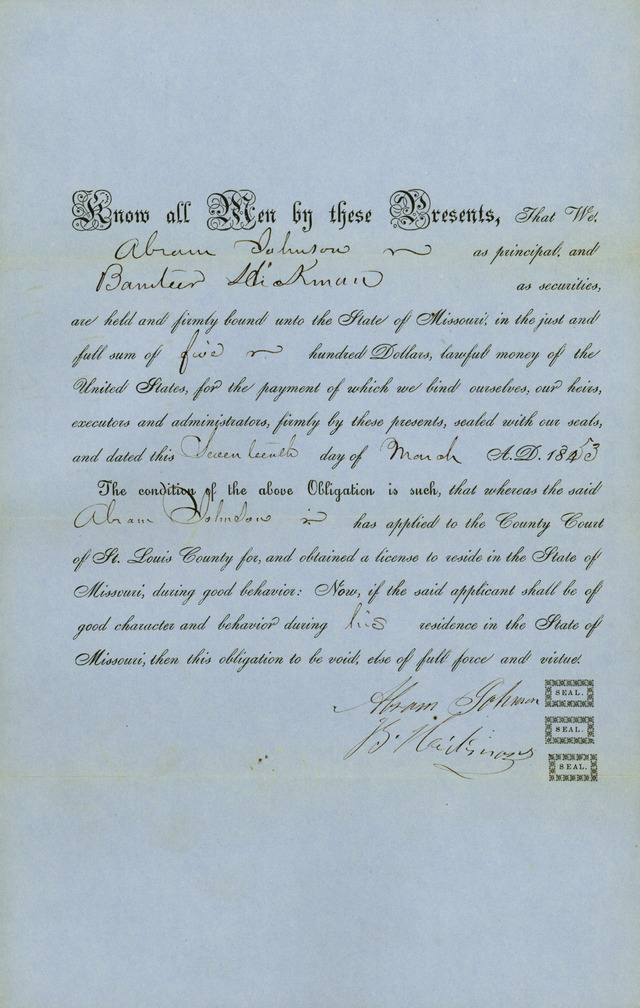 Know all Men by these Presents, That We,
Abram Johnson as principal, and
Hickman as securities,
are held and firmly bound unto the State of Missouri, in the just and
full sum of five hundred Dollars, lawful money of the
United States, for the payment of which we bind ourselves, our heirs,
executors and administrators, firmly by these presents, sealed with our seals,
and dated this Seventeenth day of March A.D. 1853
The condition of the above Obligation is such, that whereas the said
Abram Johnson has applied to the County Court
of St. Louis County for, and obtained a license to reside in the State of
Missouri, during good behavior: Now, if the said applicant shall be of
good character and behavior during his residence in the State of
Missouri, then this obligation to be void, else of full force and virtue.
Abram Johnson SEAL.
B. Hickman SEAL.
SEAL.